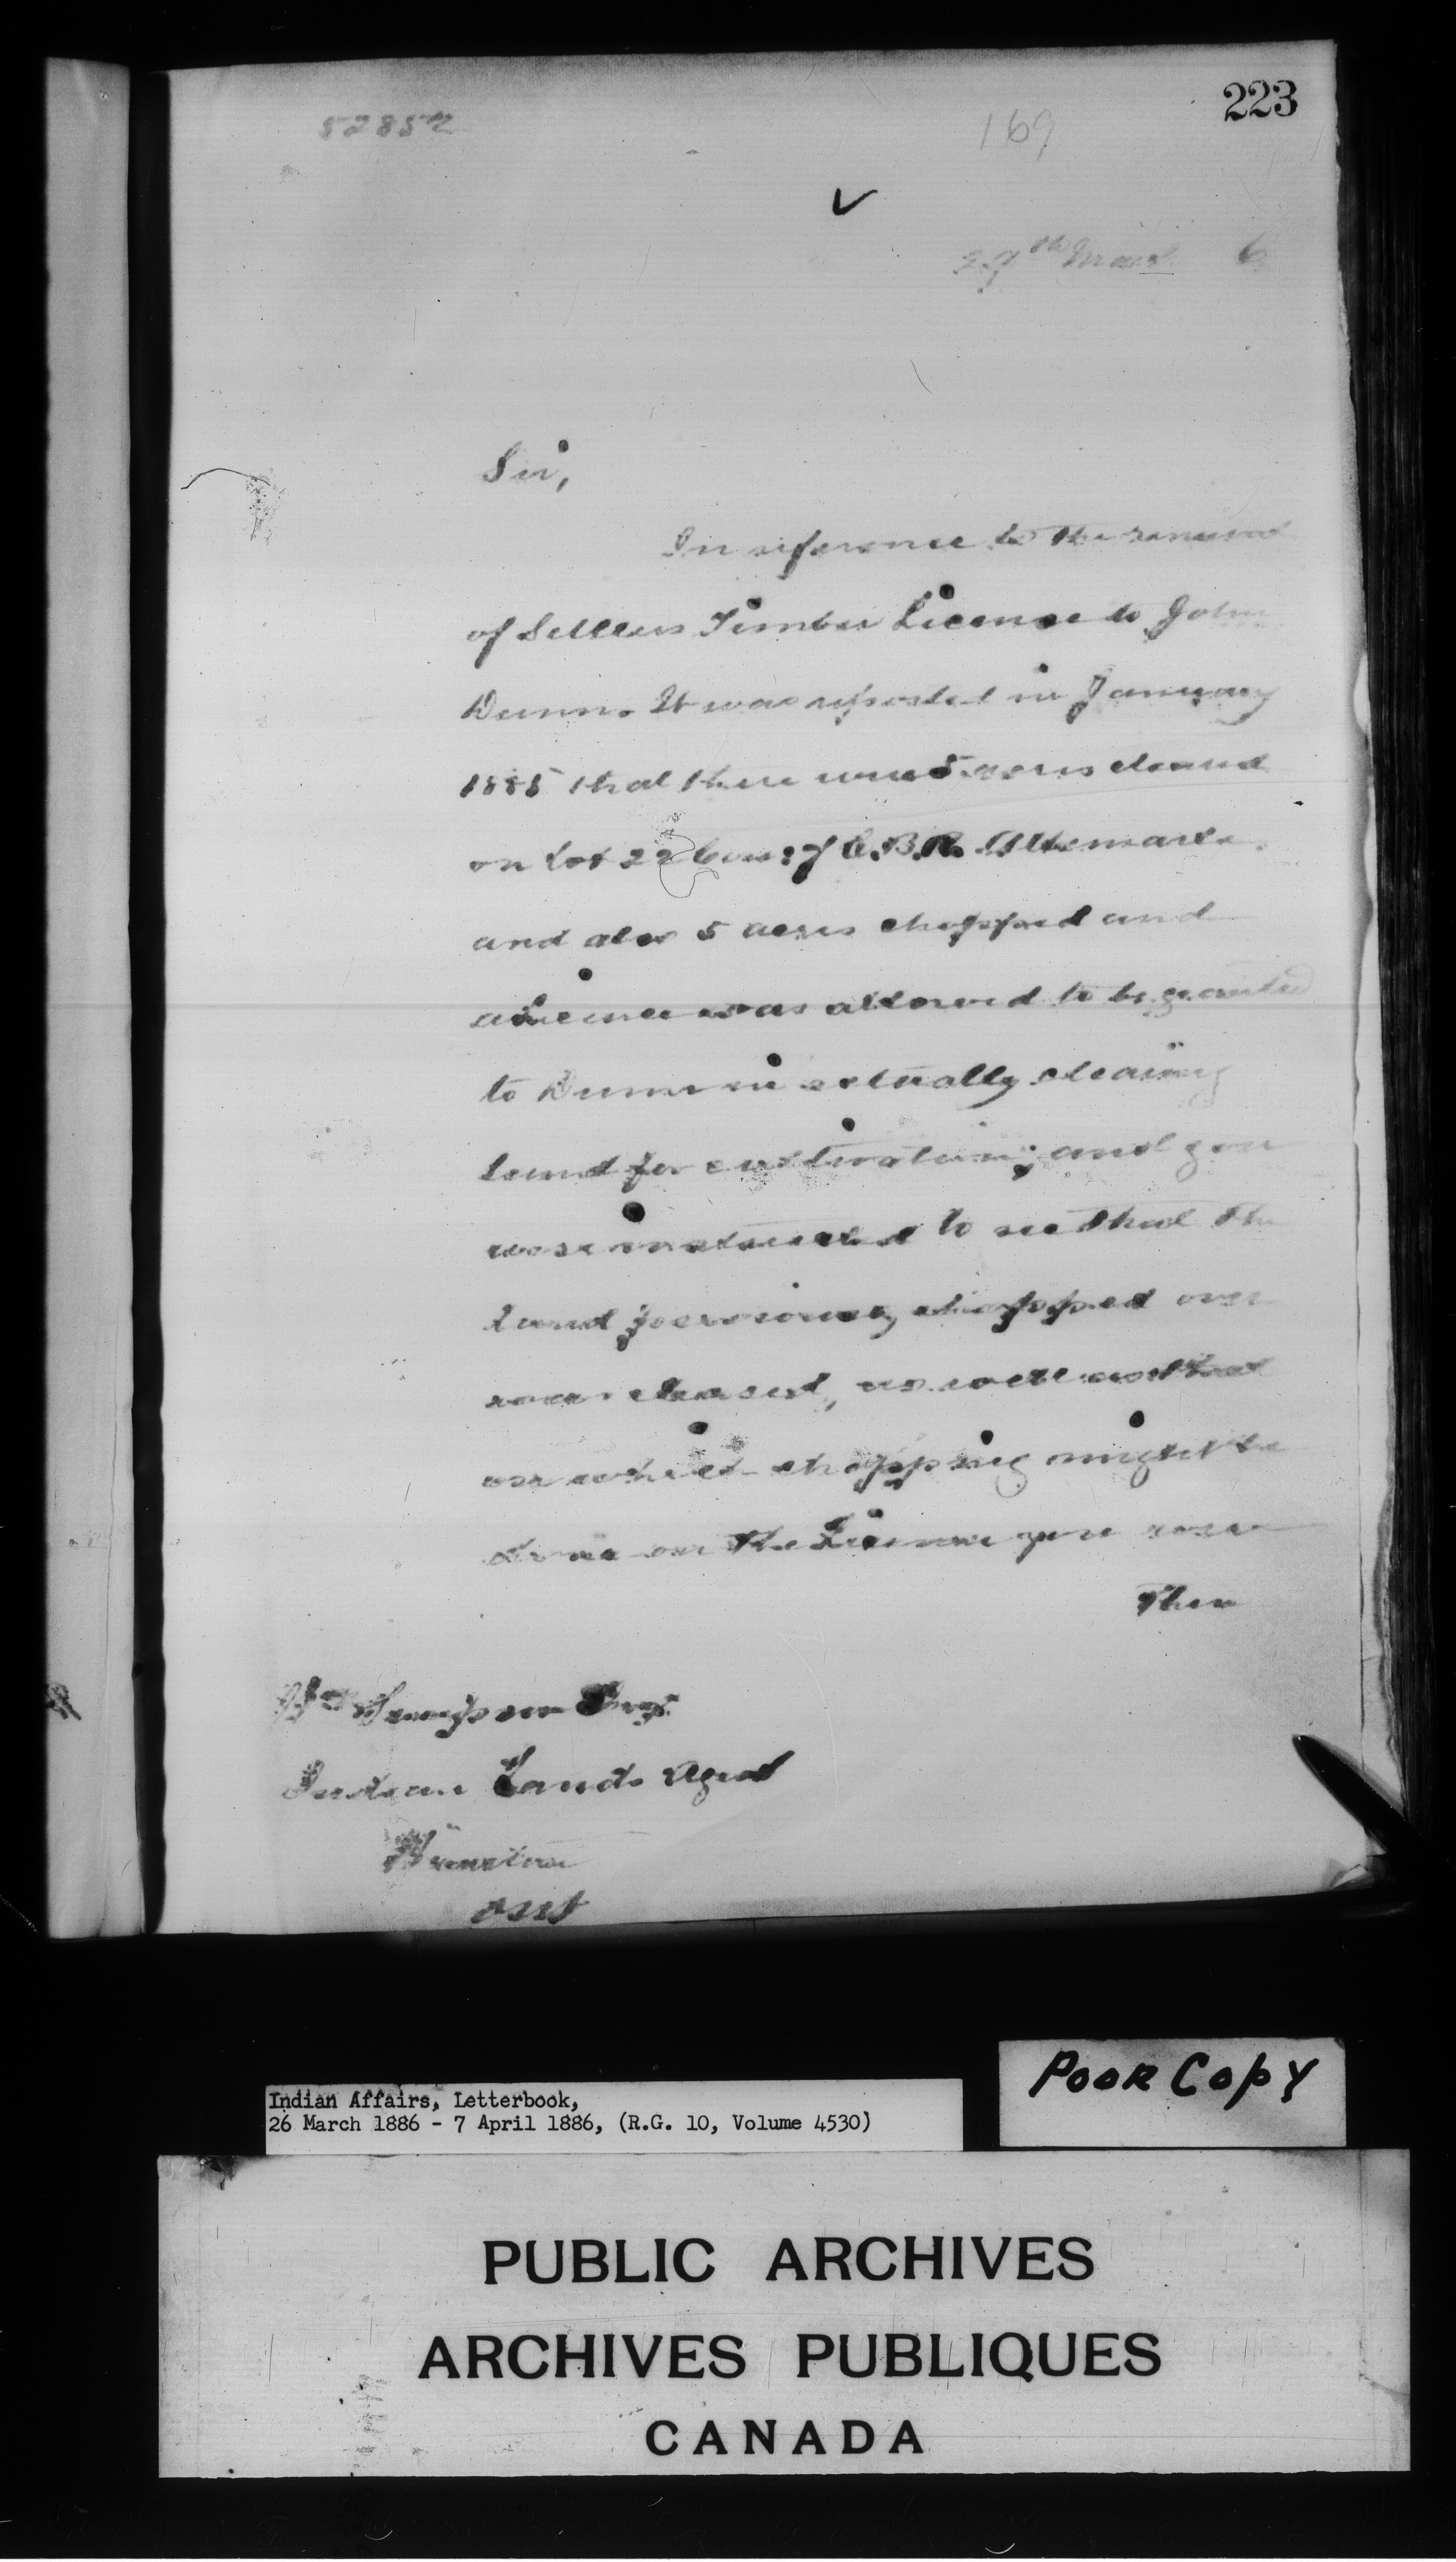 223
52852
169
29th March 6
Sir,
In reference to the renewal
of Settlers Timber License to John
Dunn. It was reported in January
1885 that there were 5 acres cleared
on Lot 22 Con: 7 E.B.R. Albemarle.
and also 5 acres chopped and
a License was allowed to be granted
to Dunn in actually clearing
land for cultivation; and you
were instructed to see that the
land previously chopped over
was cleared, as well as that
over which chopping might be
done on the License you were
then
Wm Simpson Esqr
Indian Lands Agent
Wiarton
Ont
Poor Copy
Indian Affairs, Letterbook,
26 March 1886 - 7 April 1886, (R.G. 10, Volume 4530)
PUBLIC ARCHIVES
ARCHIVES PUBLIQUES
CANADA